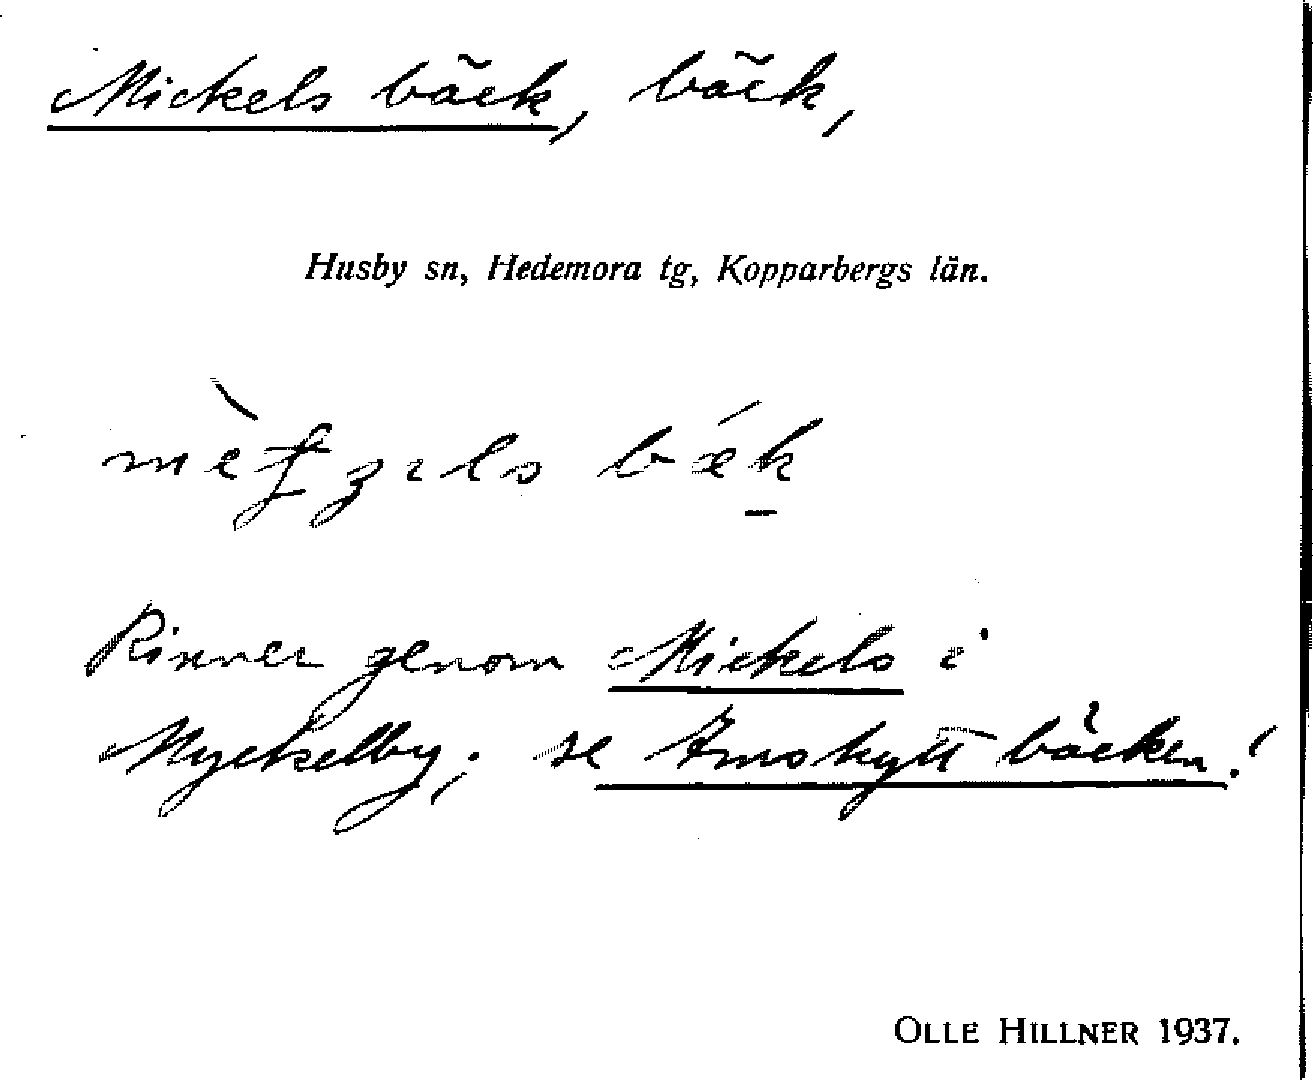 Mickels bäck, bäck,
Husby sn, Hedemora tg, Kopparbergs län.
bæk
Rinner genom Mickels i
Myckelby; se bäcken!
OLLE HILLNER 1937.